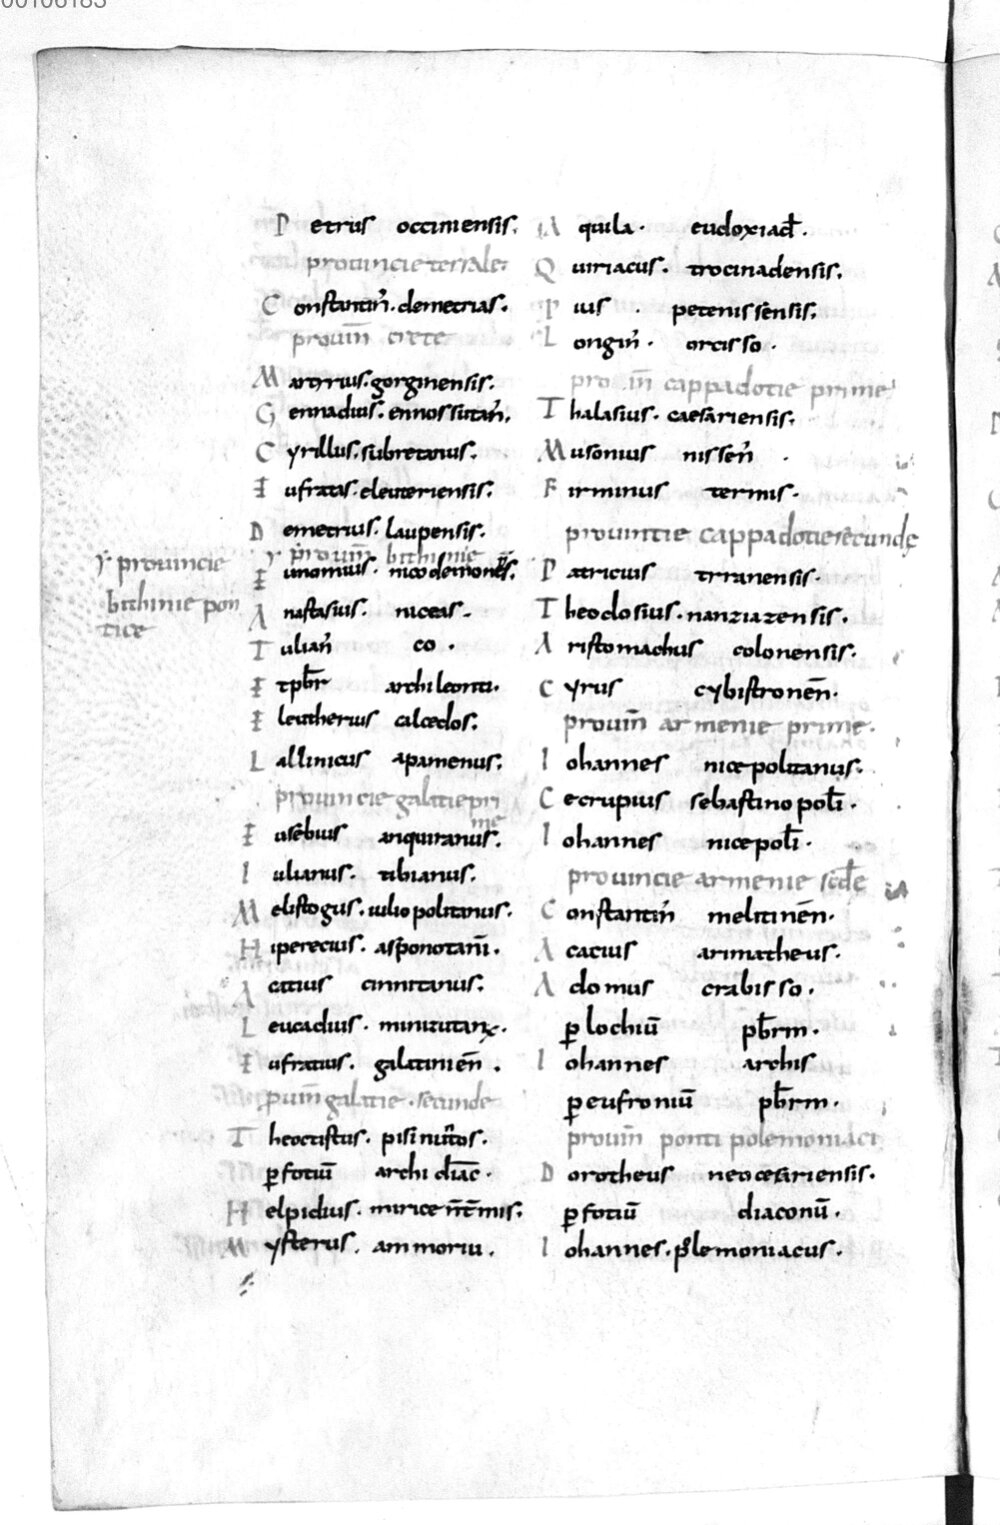 00106183
Petrus occiniensis.
prouincie tersalie.
Constantin̄. demetrias.
prouin̄ crete
Martyrius. gorginensis.
Gennadius. ennossiitan̄.
Cyrillus. subretanus.
Eufratas. eleuteriensis.
Demetrius. laupensis.
prouin̄ bithinie
Eunomius. nicodemones.
prouincie
bithinie pon
tice
Anastasius. niceas.
Iulian̄ co.
Etpb̄r archileonti.
Eleutherius calcedos.
Lallinicus apamenus.
prouincie galatie pri
me
Eusebius anquiranus.
Iulianus. tibianus.
Melistogus. iuliopolitanus.
Hiperecius. asponotani̅.
Acatius cinnitanus.
Leucadius. minizutanx.
Eufratius. galatinien̄.
puin̄ galatie. secunde
Theoctistus. pisinuntos.
ꝑ fotiū archi diāc.
Helpidius.
Mysterus. ammoriu.
Aquila. eudoxiad̄.
Quiriacus. trocinadensis.
Pius. petenissensis.
Longin̄. orcisso.
pro in̄ cappadotie prime
Thalasius. caesariensis.
Musonius nissen̄.
Firminus termis.
prouintie cappadotie secundę
Patricius tyranensis.
Theodosius. nanziazensis.
Aristomachus colonensis.
Cyrus cybistronen̄.
prouin̄ armenie prime.
Iohannes nicepolitanus.
Cecrupius sebastinopol̄i.
Iohannes nicepol̄i.
prouincie armenie scd̄e
Constantin̄ melitinen̄.
Acacius arimatheus.
Adomus crabisso.
ꝑ lochiū pb̄rm.
Iohannes archis
ꝑ eufroniū pb̄rm.
prouin̄ ponti polemoniaci
Dorotheus neocesariensis.
ꝑ fotiū diaconū.
Iohannes. polemoniacus.